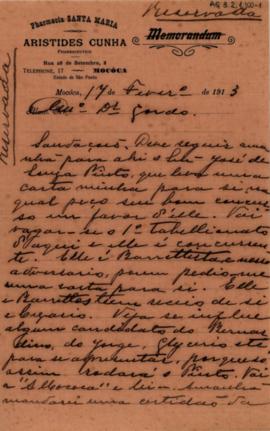 AG 8.2.1.300-1
Reservada
Pharmacia SANTA MARIA
ARISTIDES CUNHA
PHARMACEUTICO
Rua 28 de Setembro, 4
TELEPHONE, 17 MOCÓCA
Estado de São Paulo
Memorandum
Reservada
Mocóca, 17 Fever.º de 1913
Dr. Gordo.
Saudações. Deve seguir ama-
nhã para ahi o Snr. José de
Souza Pinto, que leva uma
carta minha para si, na
qual peço seu bom concur-
so um favor d'elle. Vai
vagar-se o 1º tabellionato
d'aqui e elle é concurren-
te. Elle é Barrettista, e nosso
adversario, porem pedio-me
uma carta para si. Elle
e Barrettos tem receio de si
e Cezario. Veja se influe
algum candidato do Bernar-
dino, do Jorge, Glycerio etc
para se apresentar, porque só
assim rodará o Pinto. Vai
a "Mocóca" e leia. Amanhã
mandarei uma certidão da